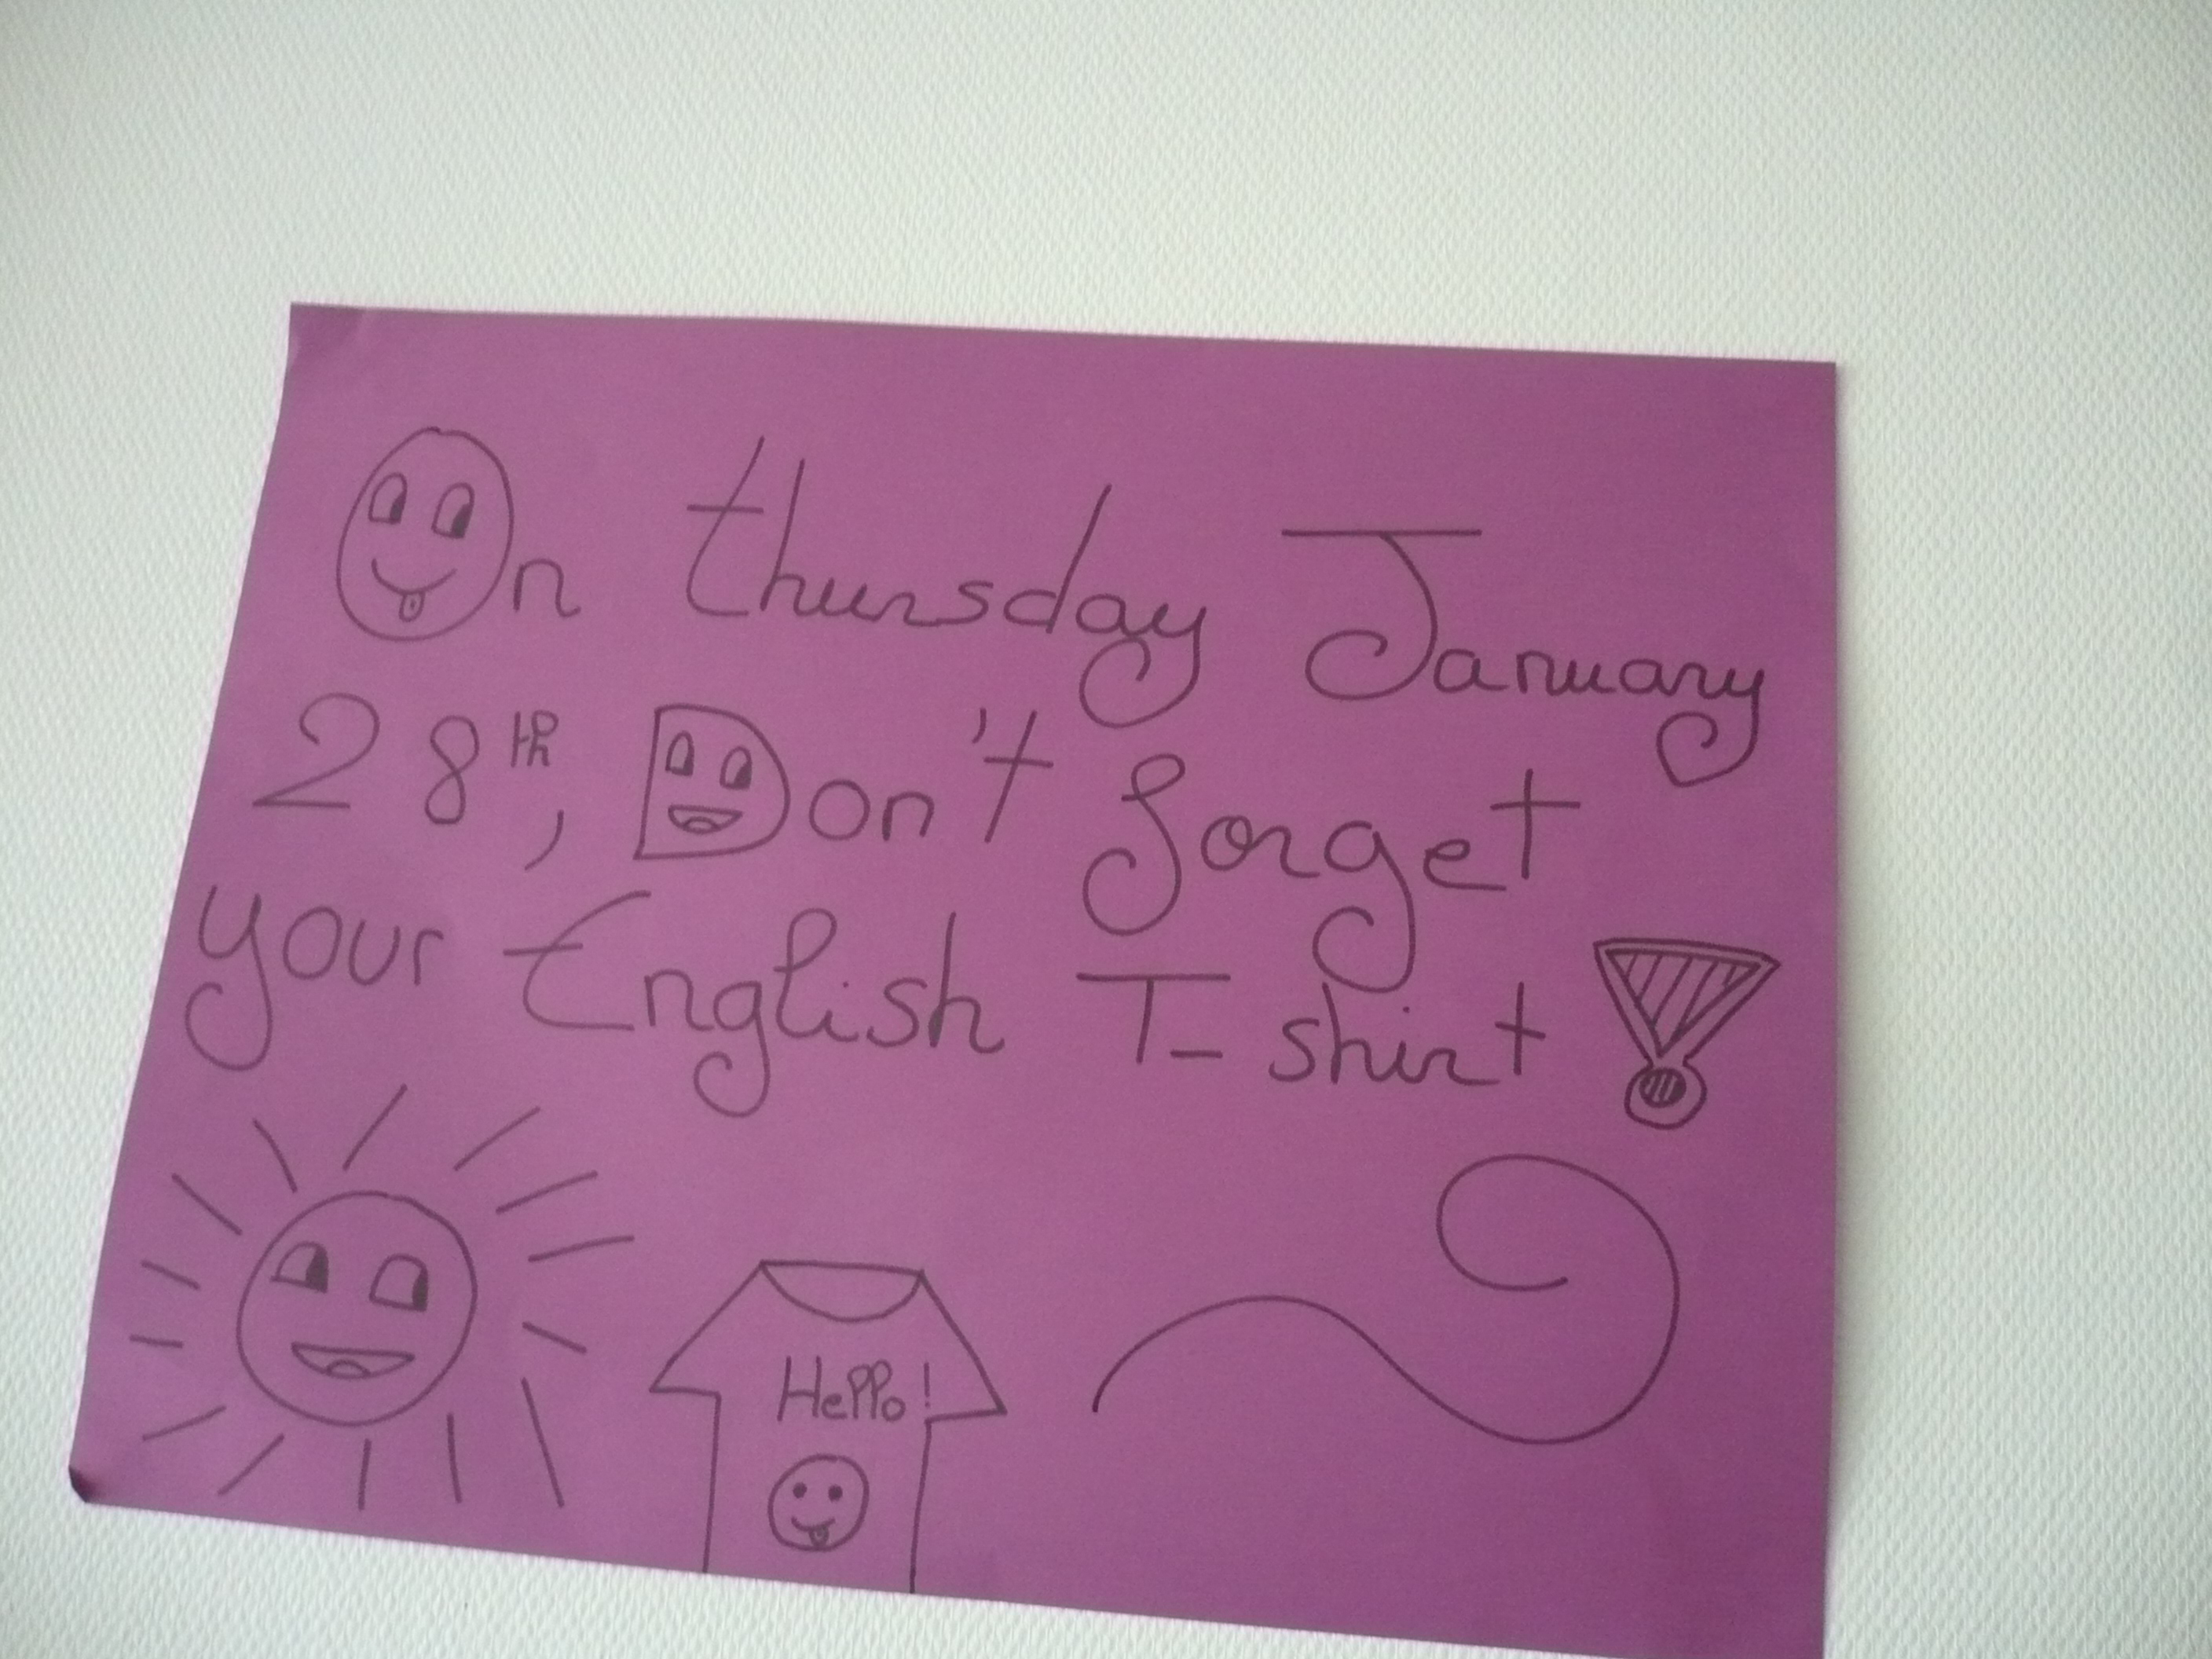 On thursday January
28th, Don't forget
your English T-shirt!
Hello!